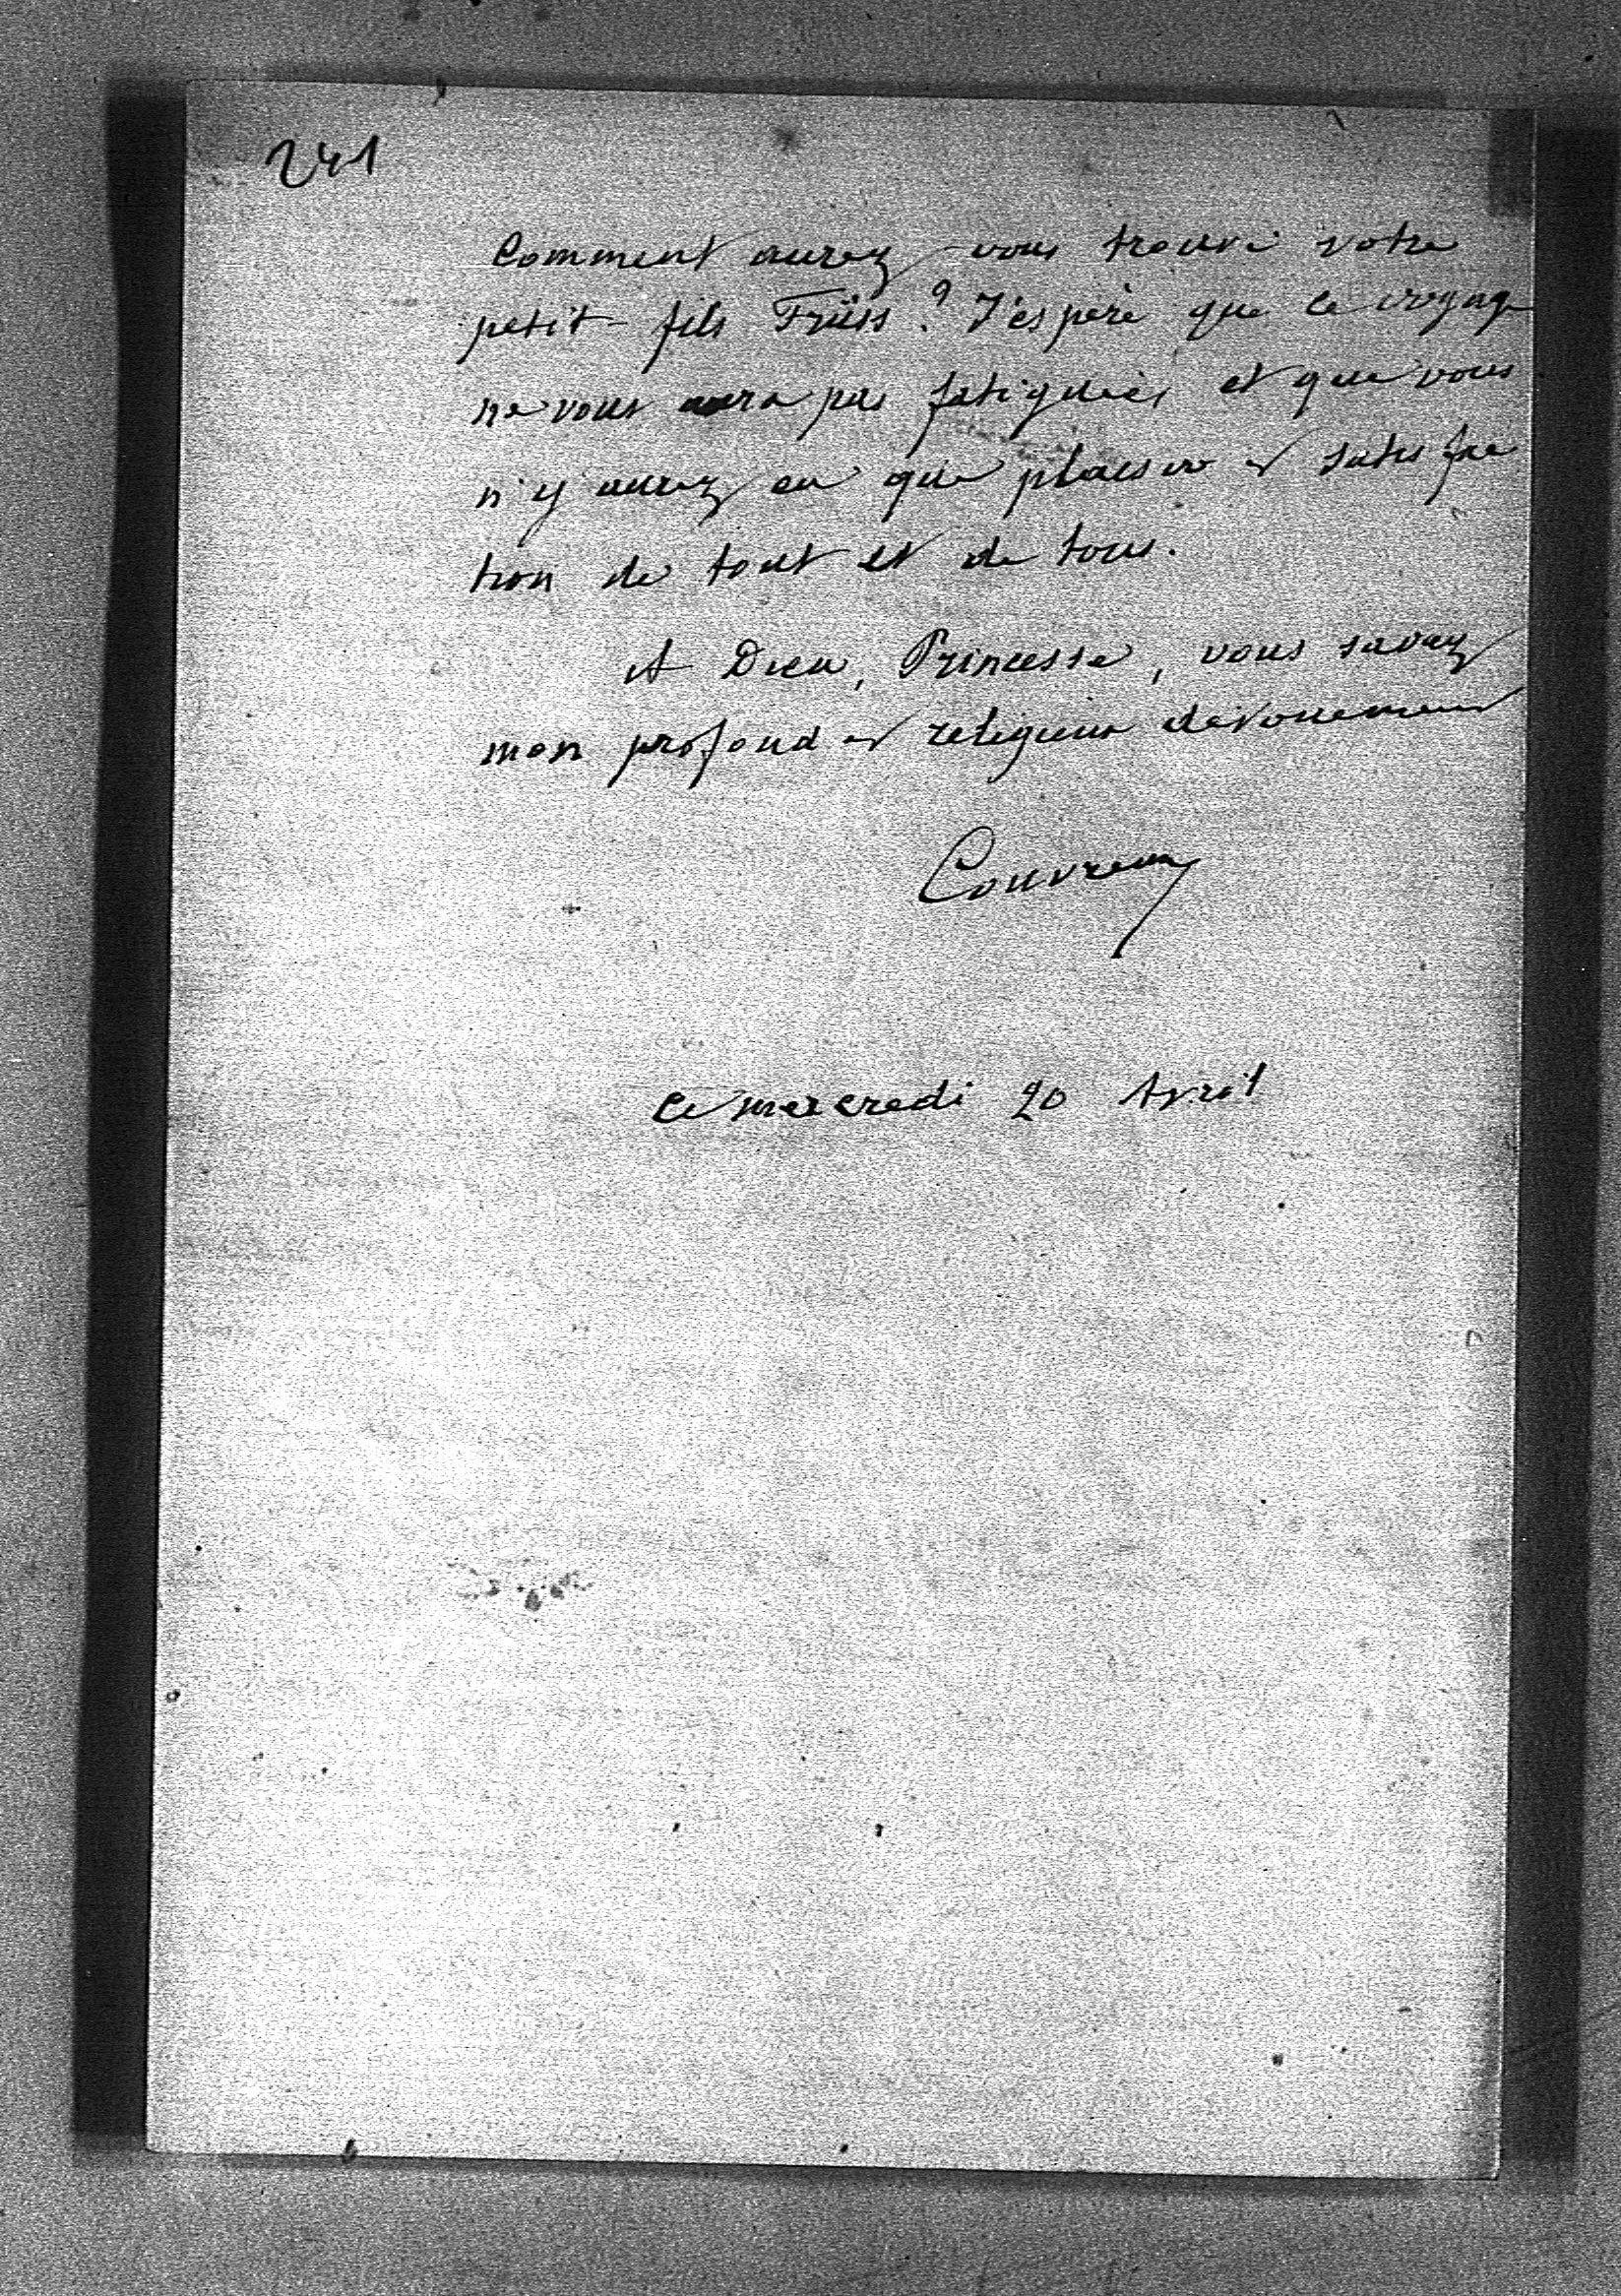 241
Comment aurez-vous trouvé votre
petit-fils Früss ? J'espère que ce voyage
ne vous aura pas fatiguée, et que vous
n'y aurez eu que plaisir et satisfac
tion de tout et de tous.
A Dieu, Princesse, vous savez
mon profond et religieux dévouement
Couvreux
ce mercredi 20 Avril